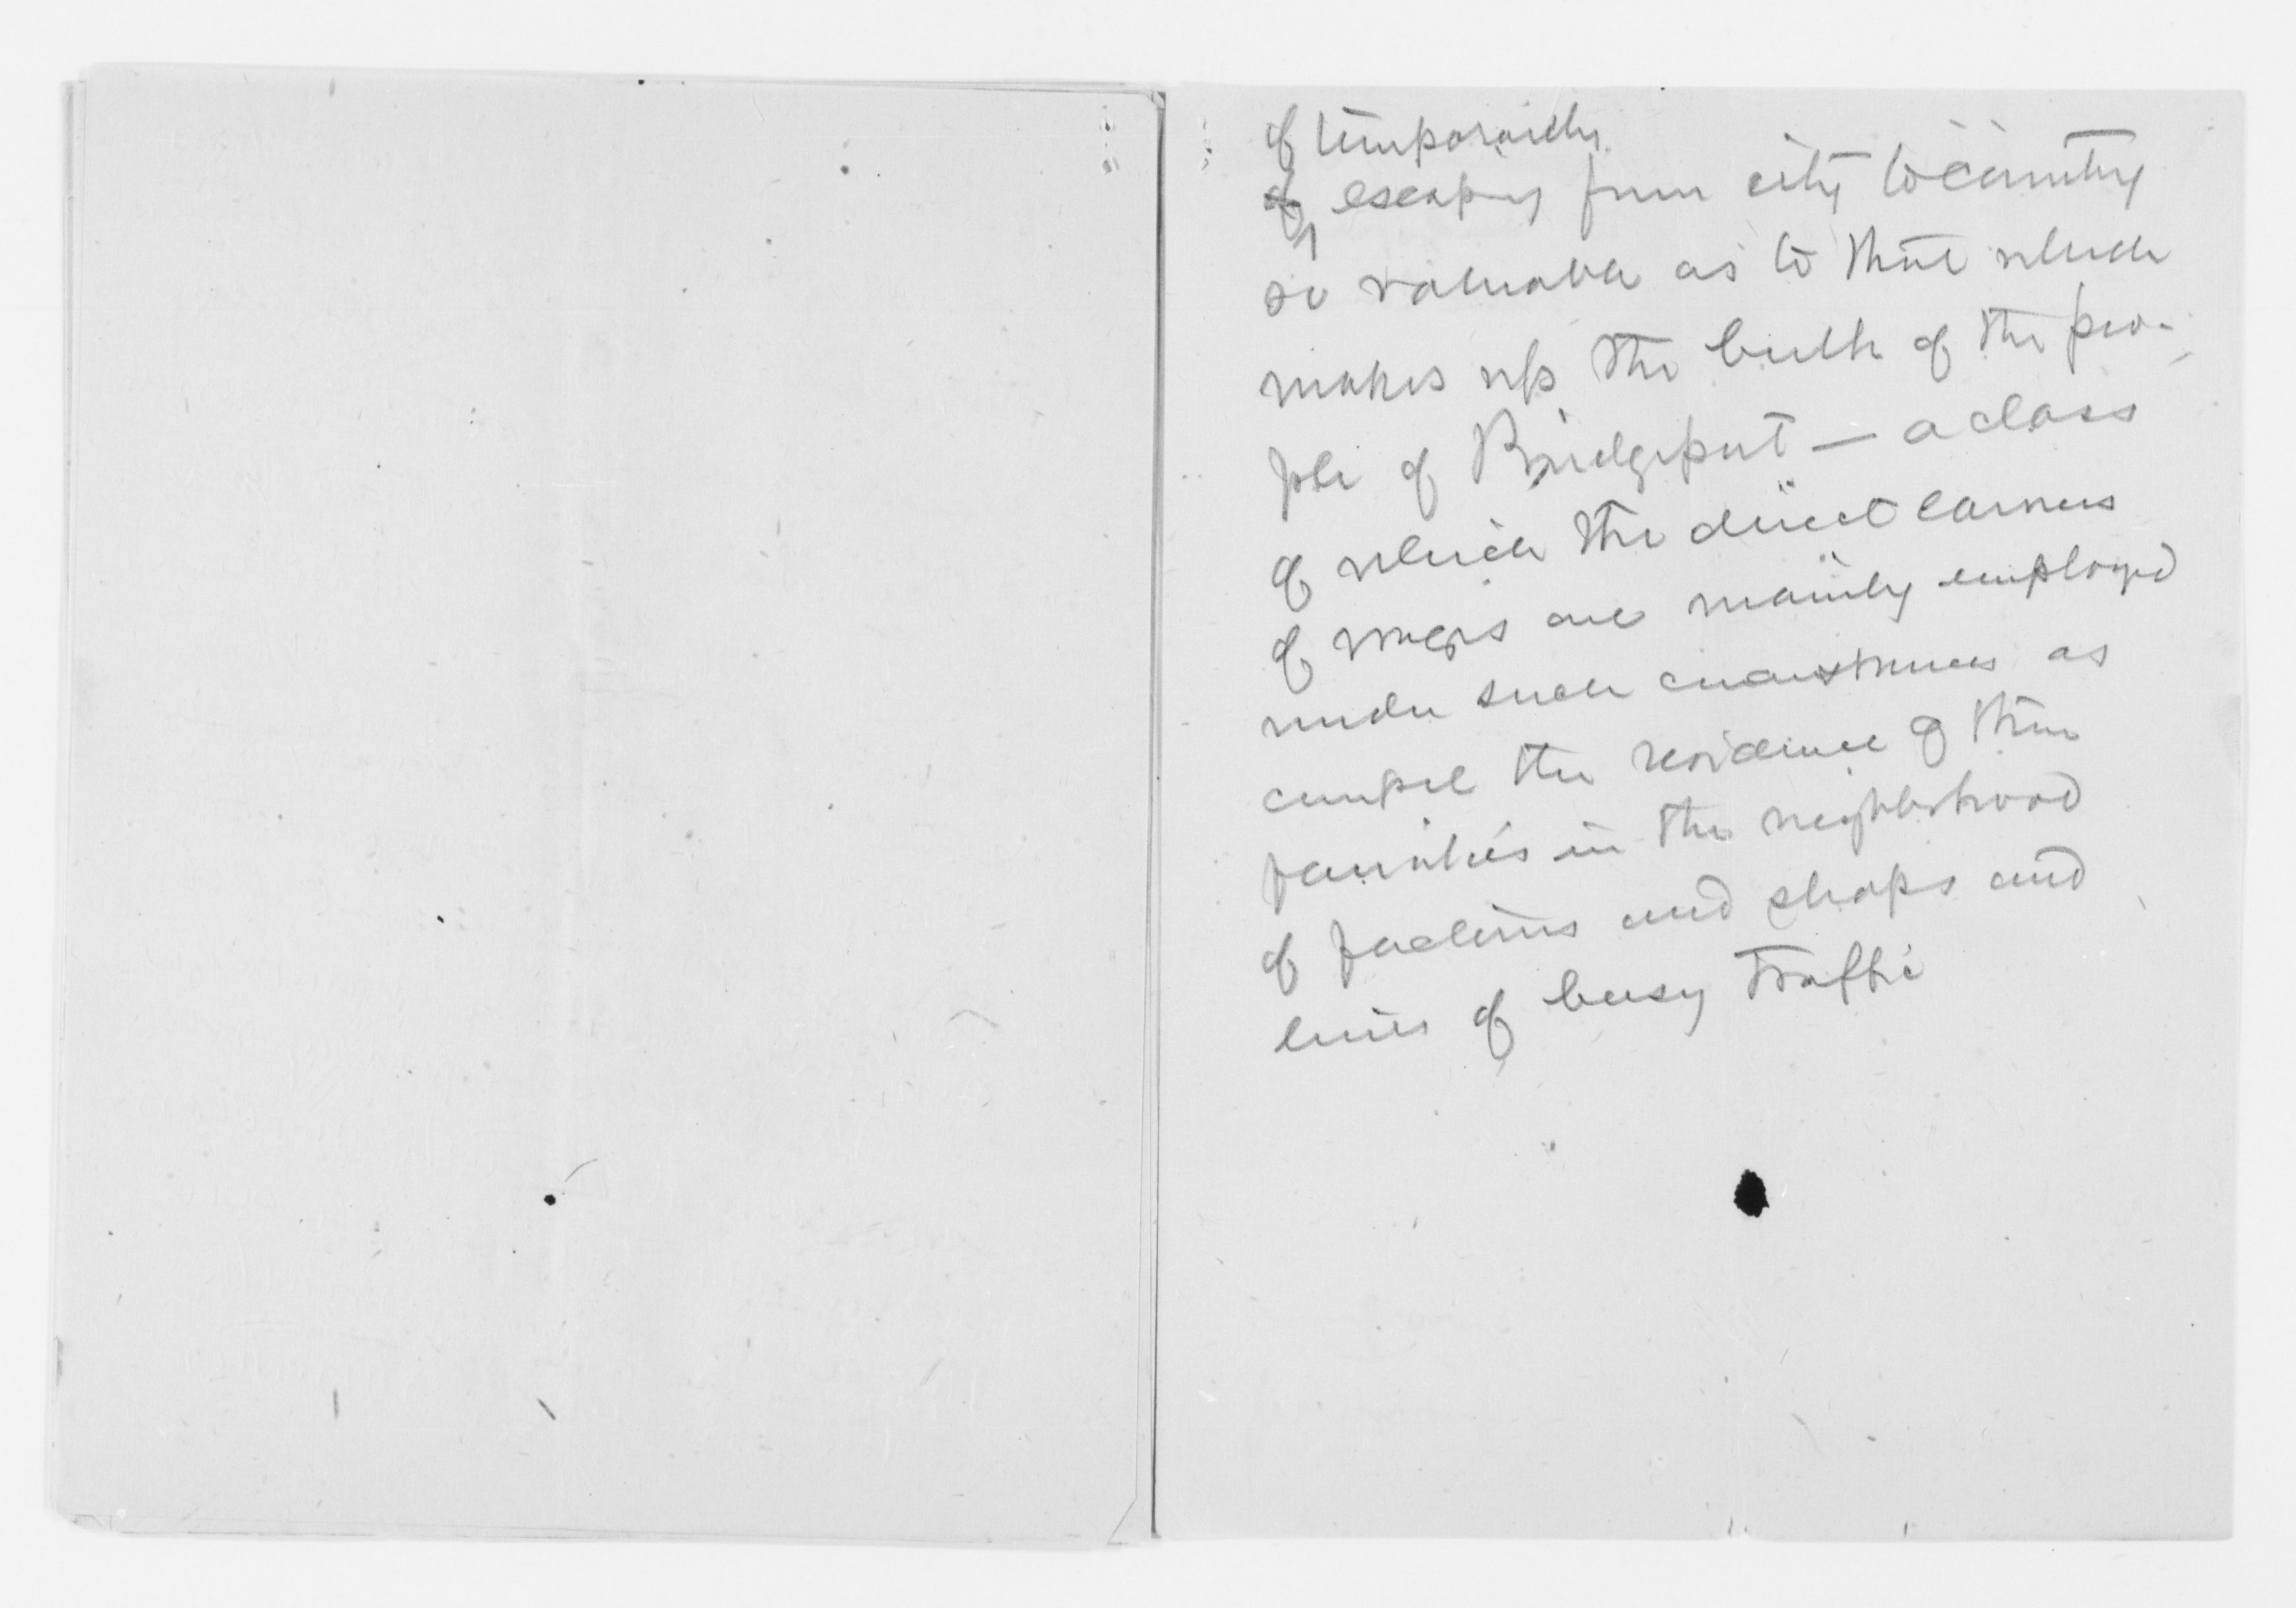 of temporarily
of escaping from city to country
so valuable as to that which
makes up the bulk of the peo-
ple of Bridgeport — a class
of which the direct earners
of wages are mainly employed
under such circumstances as
compel the residence of their
families in the neighborhood
of factories and shops and
lines of busy traffic